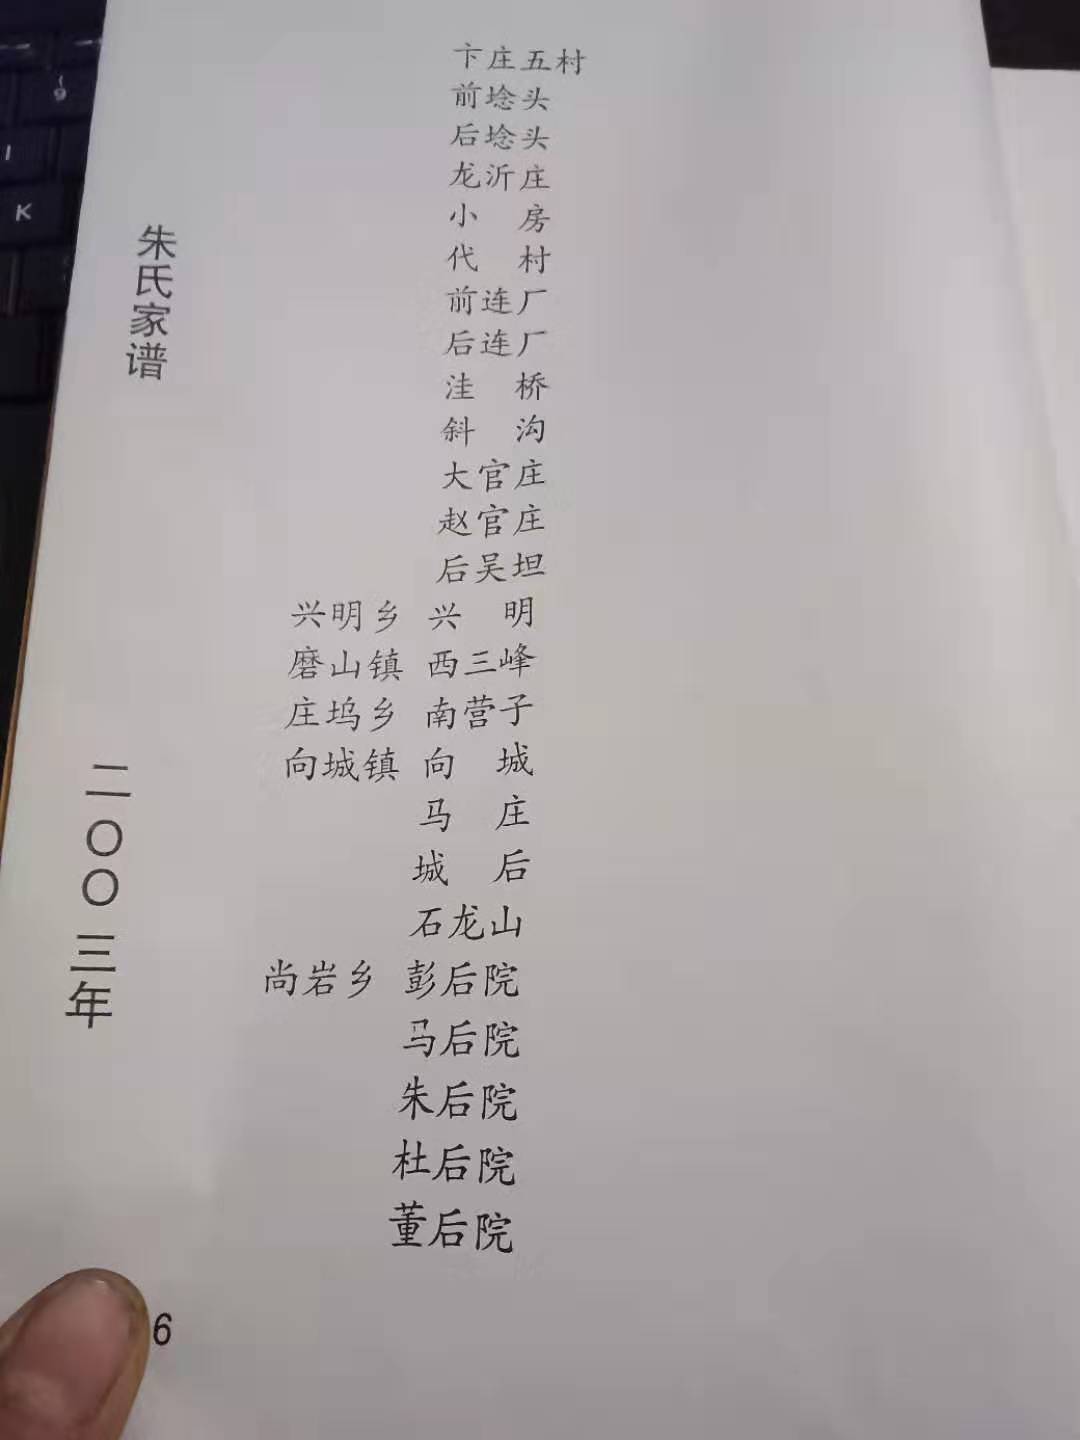 卞庄五村
前埝头
后埝头
龙沂庄
小 房
代 村
前连厂
后连厂
洼 桥
斜 沟
大官庄
赵官庄
后吴坦
兴明乡 兴 明
磨山镇 西三峰
庄坞乡 南营子
向城镇 向 城
马 庄
城 后
石龙山
尚岩乡 彭后院
马后院
朱后院
杜后院
董后院
朱氏家谱
二〇〇三年
6
9
I
K